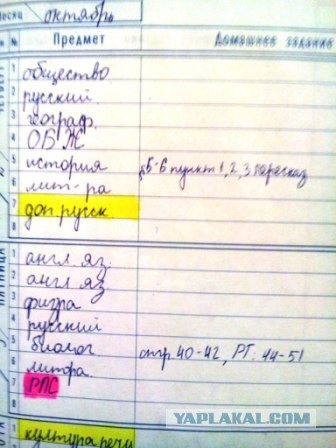 Месяц октябрь
№ Предмет Домашнее задание
ЧЕТВЕРГ
1 общество
2 русский
3 географ.
4 ОБЖ
5 история §5-6 пункт 1, 2, 3 пересказ
6 лит-ра
7 доп русск.
8
ПЯТНИЦА
1 англ яз.
2 англ яз
3 физра
4 русский
5 биолог стр. 40-42, РТ. 44-51
6 литра
7 РПС
8
1 культура речи
YAPLAKAL.COM